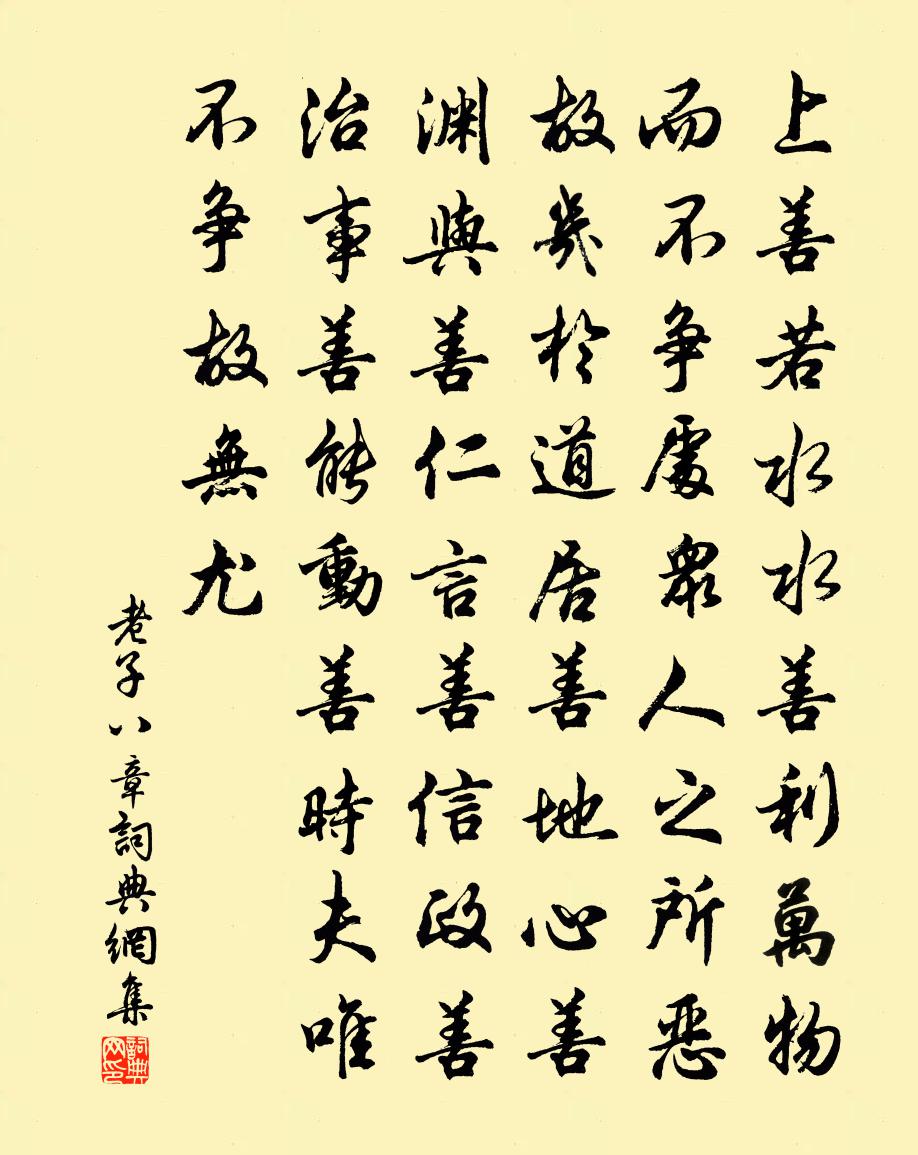 上善若水水善利萬物
而不爭處衆人之所惡
故幾於道居善地心善
淵與善仁言善信政善
治事善能動善時夫唯
不爭故無尤
老子八章詞典網集
詞典网印